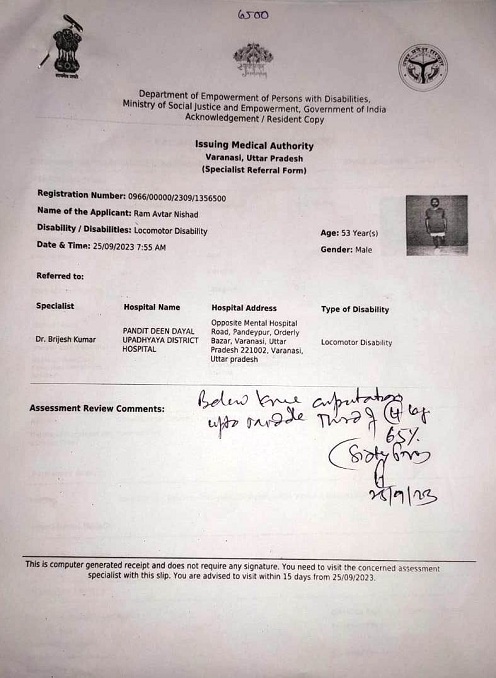 6500
Department of Empowerment of Persons with Disabilities,
Ministry of Social Justice and Empowerment, Government of India
Acknowledgement / Resident Copy
Issuing Medical Authority
Varanasi, Uttar Pradesh
(Specialist Referral Form)
Registration Number: 0966/00000/2309/1356500
Name of the Applicant: Ram Avtar Nishad
Disability / Disabilities: Locomotor Disability
Age: 53 Year(s)
Date & Time: 25/09/2023 7:55 AM
Gender: Male
Referred to:
Specialist Hospital Name Hospital Address Type of Disability
Dr. Brijesh Kumar
PANDIT DEEN DAYAL
UPADHYAYA DISTRICT
HOSPITAL
Opposite Mental Hospital
Road, Pandeypur, Orderly
Bazar, Varanasi, Uttar
Pradesh 221002, Varanasi,
Uttar pradesh
Locomotor Disability
Assessment Review Comments:
Below knee amputation
upto middle Third of leg
65%
25/9/23
This is computer generated receipt and does not require any signature. You need to visit the concerned assessment
specialist with this slip. You are advised to visit within 15 days from 25/09/2023.